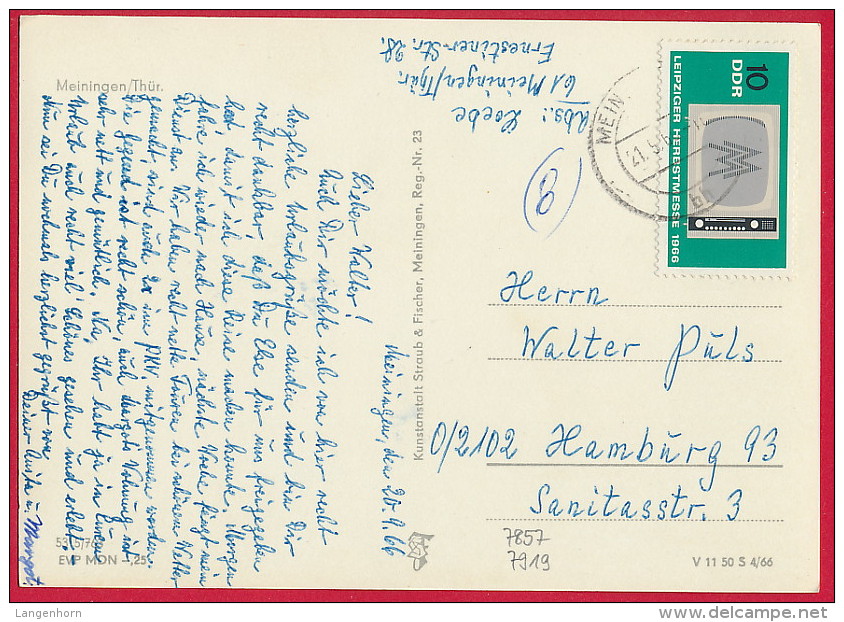 Meiningen/Thür.
Meiningen, den 20.9.66
Lieber Walter!
Auch Dir möchte ich von hier recht
herzliche Urlaubsgrüße senden und bin Dir
recht dankbar, daß Du Else für uns freigegeben
hast, damit ich diese Reise machen konnte. Morgen
fahre ich wieder nach Hause, nächste Woche fängt mein
Dienst an. Wir haben recht nette Touren bei schönem Wetter
gemacht, sind auch 2x im PKW mitgenommen worden.
Die Gegend ist recht schön, auch Margots Wohnung ist
sehr nett und gemütlich. Na, Ihr habt ja in Eurem
Urlaub auch recht viel Schönes gesehen und erlebt.
Nun sei Du nochmals herzlichst gegrüßt von
Deiner Anita u. Margot.
53 5/76
EVP MDN -,25
Kunstanstalt Straub & Fischer, Meiningen, Reg.-Nr. 23
Abs.: Loebe
61 Meiningen/Thür.
Ernestiner-Str. 28.
8
MEIN
bh
10
DDR
LEIPZIGER HERBSTMESSE 1966
MM
Herrn
Walter Puls
O/2102 Hamburg 93
Sanitasstr. 3
7857
7919
V 11 50 S 4/66
Langenhorn
© delcampe.net